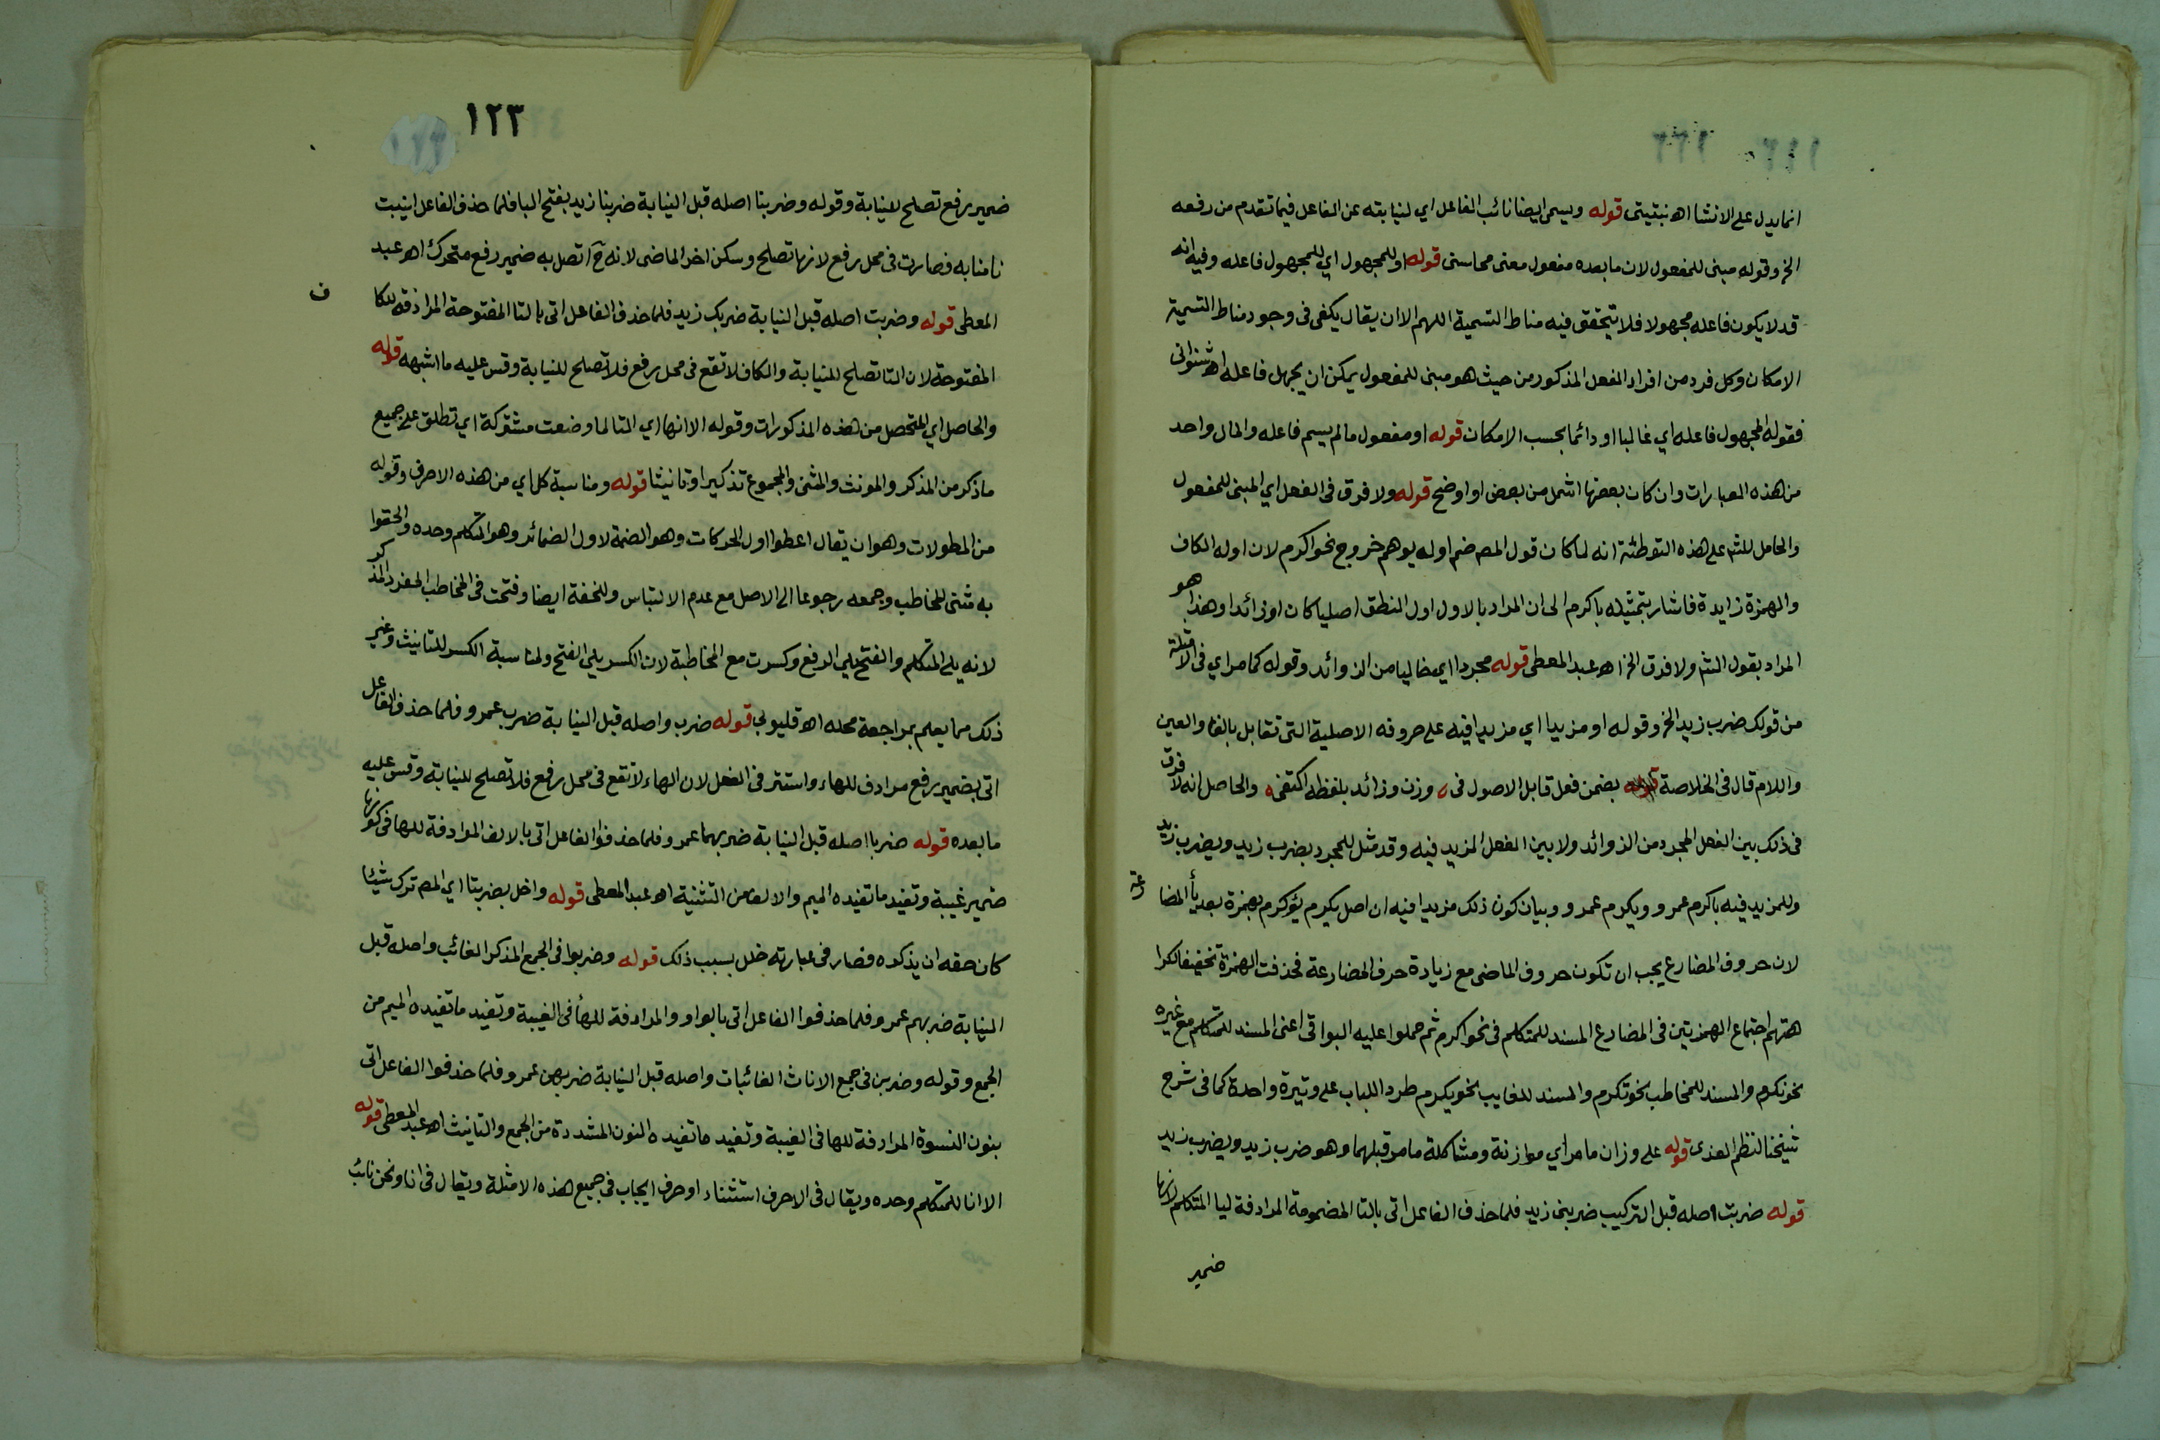 انما يدل على الانشا اه نبتيتى قوله ويسمى ايضا نائب الفاعل اي لنيابته عن الفاعل فيما تقدم من رفعه
الخ وقوله مبنى للمفعول لان ما بعده مفعول معنى محاسنى قوله او للمجهول اي للمجهول فاعله وفيه انه
قد لا يكون فاعله مجهولا فلا يتحقق فيه مناط التسمية اللهم الا ان يقال يكفى فى وجود مناط التسمية
الامكان وكل فرد من افراد الفعل المذكور من حيث هو مبنى للمفعول يمكن ان يجهل فاعله اه شنوانى
فقوله المجهول فاعله اي غالبا او دائما بحسب الامكان قوله او مفعول ما لم يسم فاعله والمال واحد
من هذه العبارات وان كان بعضها اشمل من بعض او اوضح قوله ولا فرق فى الفعل اي المبنى للمفعول
والحامل للشم على هذه التوطئة انه لما كان قول المصم ضم اوله يوهم خروج نحو اكرم لان اوله الكاف
والهمزة زايدة فاشار بتمثيله باكرم الى ان المراد بالاول اول النطق اصليا كان او زائدا وهذا هو
المراد بقول الشم ولا فرق الخ اه عبد المعطى قوله مجردا اي خاليا من الزوائد وقوله كما مر اي فى الامثلة
من قولك ضرب زيد الخ وقوله او مزيدا اي مزيدا فيه على حروفه الاصلية التى تقابل بالفا والعين
واللام قال فى الخلاصة بضمن فعل قابل الاصول فى ه وزن وزائد بلفظه اكتفى ه والحاصل انه لا فرق
فى ذلك بين الفعل المجرد من الزوائد ولا بين الفعل المزيد فيه وقد مثل للمجرد بضرب زيد ويضرب زيد
وللمزيد فيه باكرم عمرو ويكرم عمرو وبيان كون ذلك مزيدا فيه ان اصل يكرم يؤكرم بهمزة بعد يأ المضا
رعة
لان حروف المضارع يجب ان تكون حروف الماضى مع زيادة حرف المضارعة فحذفت الهمزة تخفيفا لكرا
هتهم اجتماع الهمزتين فى المضارع المسند للمتكلم فى نحو اكرم ثم حملوا عليه البواقى اعنى المسند للمتكلم مع غيره
نحو نكرم والمسند للمخاطب نحو تكرم والمسند للغايب نحو يكرم طردا للباب على وتيرة واحدة كما فى شرح
شيخنا لنظم العزى قوله على وزان ما مر اي موازنة ومشاكلة ما مر قبلهما وهو ضرب زيد ويضرب زيد
قوله ضربت اصله قبل التركيب ضربنى زيد فلما حذف الفاعل اتى بالتا المضمومة المرادفة ليا المتكلم لانها
ضمير
١٢٣
ضمير رفع تصلح للنيابة وقوله وضربنا اصله قبل النيابة ضربنا زيد بفتح البا فلما حذف الفاعل انيبت
نا منابه فصارت فى محل رفع لانها تصلح وسكن اخر الماضى لانه ح اتصل به ضمير رفع متحرك اه عبد
المعطى قوله وضربت اصله قبل النيابة ضربك زيد فلما حذف الفاعل اتى بالتا المفتوحة المرادفة للكا
ف
المفتوحة لان التا تصلح للنيابة والكاف لا تقع فى محل رفع فلا تصلح للنيابة وقس عليه ما اشبهه قوله
والحاصل اي المتحصل من هذه المذكورات وقوله الا انها اي التا لما وضعت مشتركة اي تطلق على جميع
ما ذكر من المذكر والمونث والمثنى والمجموع تذكيرا وتانيثا قوله ومناسبة كل اي من هذه الاحرف وقوله
من المطولات وهو ان يقال اعطوا اول الحركات وهو الضمة لاول الضمائر وهو المتكلم وحده والحقوا
به مثنى المخاطب وجمعه رجوعا الى الاصل مع عدم الالتباس وللخفة ايضا وفتحت فى المخاطب المفرد المذكر
لانه يلى المتكلم والفتح يلى الرفع وكسرت مع المخاطبة لان الكسر يلى الفتح ولمناسبة الكسر للتانيث وغير
ذلك مما يعلم بمراجعة محله اه قليوبى قوله ضرب واصله قبل النيابة ضرب عمرو فلما حذف الفاعل
اتى بضمير رفع مرادف للهاء واستتر فى الفعل لان الهاء لا تقع فى محل رفع فلا تصلح للنيابة وقس عليه
ما بعده قوله ضربا اصله قبل النيابة ضربهما عمرو فلما حذفوا الفاعل اتى بالالف المرادفة للها فى كونها
ضمير غيبة وتفيد ما تفيده الميم والالف من التثنية اه عبد المعطى قوله واخل بضربتا اي المصم ترك شيئا
كان حقه ان يذكره فصار فى عبارته خلل بسبب ذلك قوله وضربوا فى الجمع المذكر الغائب واصله قبل
النيابة ضربهم عمرو فلما حذفوا الفاعل اتى بالواو والمرادفة للهأ فى الغيبة وتفيد ما تفيده الميم من
الجمع وقوله وضربن فى جمع الاناث الغائبات واصله قبل النيابة ضربهن عمرو فلما حذفوا الفاعل اتى
بنون النسوة المرادفة للها فى الغيبة وتفيد ما تفيده النون المشددة من الجمع والتانيث اه عبد المعطى قوله
الا انا للمتكلم وحده ويقال فى الاحرف استثناء او حرف ايجاب فى جميع هذه الامثلة ويقال فى انا ونحن نائب